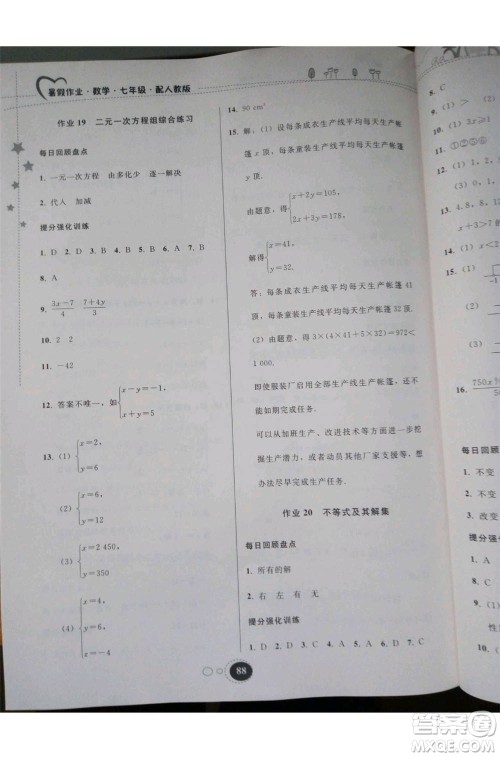 暑假作业·数学·七年级·配人教版
作业 19 二元一次方程组综合练习
每日回顾盘点
1. 一元一次方程 由多化少 逐一解决
2. 代人 加减
提分强化训练
1. D 2. D 3. A 4. B 5. D 6. D 7. B
8. A
9. (3x-7)/4 (7+4y)/3
10. 2 2
11. -42
12. 答案不唯一,如 { x-y=-1,
x+y=5
13. (1) { x=2,
y=6
(2) { x=6,
y=12
(3) { x=2 450,
y=350
(4) { x=4,
y=6,
z=-4
14. 90 cm²
15. 解:(1)设每条成衣生产线平均每天生产帐
篷 x 顶,每条童装生产线平均每天生产帐篷
y 顶.
由题意,得 { x+2y=105,
2x+3y=178,
{ x=41,
y=32.
答:每条成衣生产线平均每天生产帐篷 41
顶,每条童装生产线平均每天生产帐篷 32 顶.
(2)由题意,得 3×(4×41+5×32)=972<
1 000.
即使服装厂启用全部生产线生产帐篷,也不
能如期完成任务.
可以从加班生产、改进技术等方面进一步挖
掘生产潜力,或者动员其他厂家支援等,想法
尽早完成生产任务.
作业 20 不等式及其解集
每日回顾盘点
1. 所有的解
2. 右 左 有 无
提分强化训练
1. D 2. D 3. C 4. A 5. D 6. D 7. C
88
8. C
9. (1)
10. (1) 3x≥
11. ①③⑥
12. 0
13. 4,8,
14. (1)
15. (1)
(2)
16. 750x
每日回顾
1. 不变
2. (1) 不
3. 改变
提分强化
1. C 2.
8. C 9.
10. (1)
性
(2)
答案圈
MXQE.COM